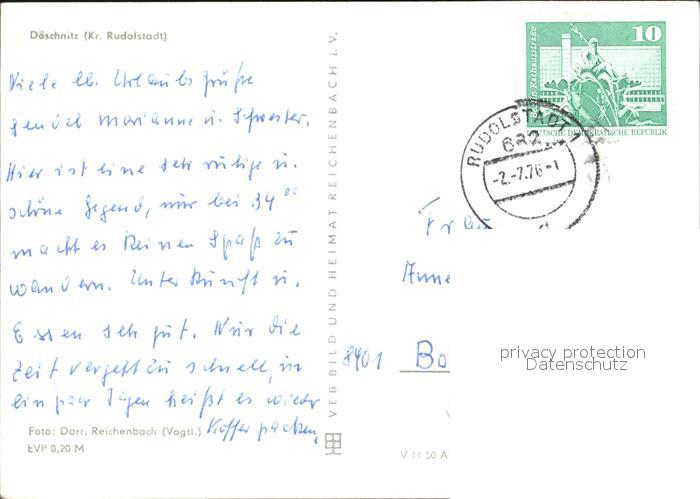 Döschnitz (Kr. Rudolstadt)
Viele lb. Urlaubsgrüße
sendet Marianne u. Schwester.
Hier ist eine sehr ruhige u.
schöne Gegend, nur bei 34°
macht es keinen Spaß zu
wandern. Unterkunft u.
Essen sehr gut. Nur die
Zeit vergeht zu schnell, in
ein paar Tagen heißt es wieder
Koffer packen.
Foto: Darr, Reichenbach (Vogtl.)
EVP 0,20 M
VEB BILD UND HEIMAT REICHENBACH i. V.
V 11 50 A
10
Rathausstraße
DEUTSCHE DEMOKRATISCHE REPUBLIK
RUDOLSTADT 1
682
-2.-7.76-1
Frau
Anne
8401 Bo
privacy protection
Datenschutz